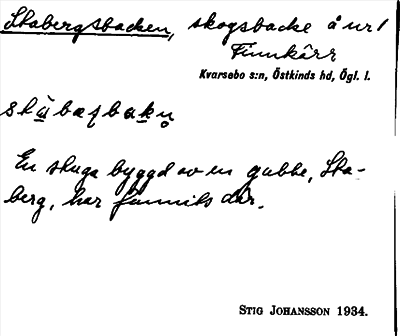 Skabergsbacken, skogsbacke å nr 1
Finnkärr
Kvarsebo s:n, Östkinds hd, Ögl. l.
En stuga byggd av en gubbe, Ska-
berg, har funnits där.
STIG JOHANSSON 1934.